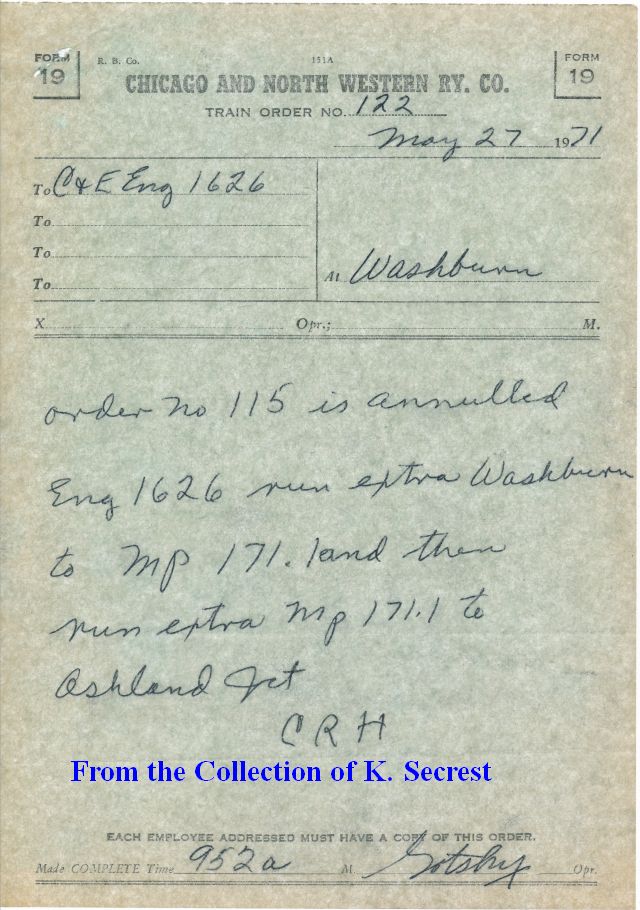 FORM 19
R. B. Co.
151A
FORM 19
CHICAGO AND NORTH WESTERN RY. CO.
TRAIN ORDER NO. 122
May 27 1971
To C & E Eng 1626
To
To
To
At Washburn
X Opr.; M.
order no 115 is annulled
Eng 1626 run extra Washburn
to MP 171.1 and then
run extra Mp 171.1 to
Ashland Jct
C R H
From the Collection of K. Secrest
EACH EMPLOYEE ADDRESSED MUST HAVE A COPY OF THIS ORDER.
Made COMPLETE Time 952a M. Opr.